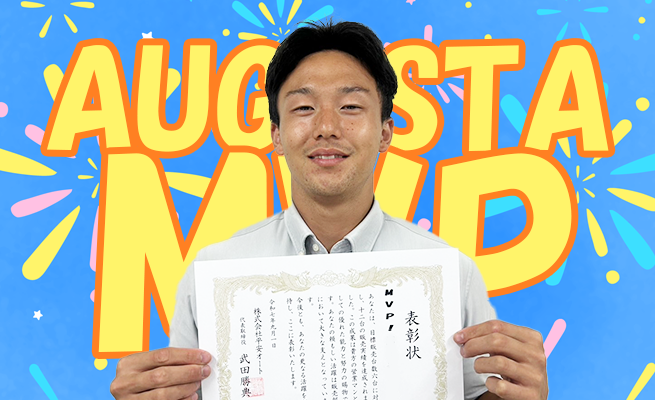 AUGUSTA
MVP
表彰状
MVP!
あなたは、目標販売台数六台に対
し、十二台の販売実績を達成されま
した。この成果は貴方の営業マンと
しての優れた能力と努力の賜物で
す。あなたの頼もしい活躍は販売部
において大きな支えとなってい
ます。
今後とも、あなたの更なる活躍を
待し、ここに表彰いたします。
令和七年九月一日
株式会社平安オート
代表取締役 武田勝典